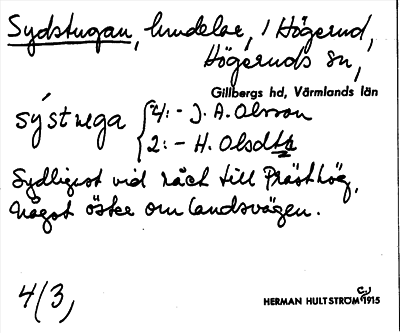 Sydstugan, lundelar, i Högerud,
Högeruds sn,
Gillbergs hd, Värmlands län
sýstuga { 4: - J. A. Olsson
2: - H. Olsdtr
Sydligast vid råct till Prästhög,
Något öster om landsvägen.
4/3,
HERMAN HULTSTRÖM 1915